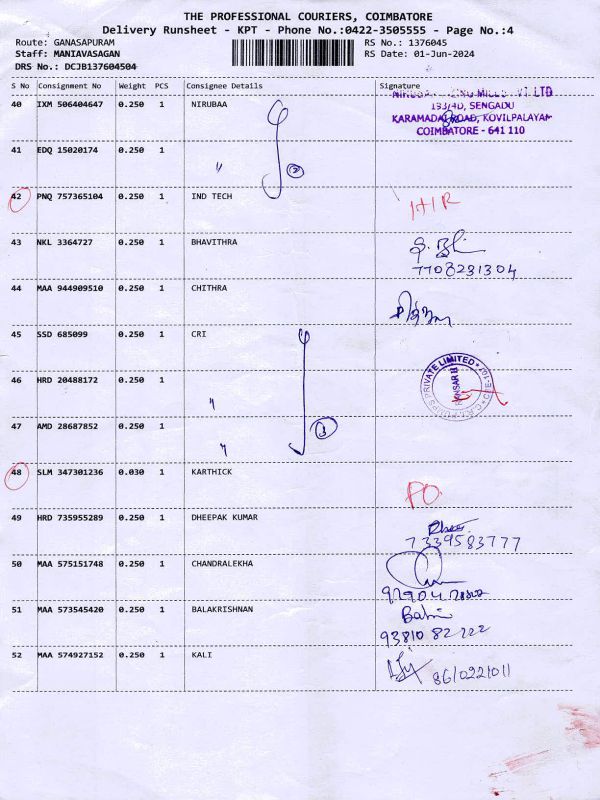 THE PROFESSIONAL COURIERS, COIMBATORE
Delivery Runsheet - KPT - Phone No.:0422-3505555 - Page No.:4
Route: GANASAPURAM RS No.: 1376045
Staff: MANIAVASAGAN RS Date: 01-Jun-2024
DRS No.: DCJB137604504
S No Consignment No Weight PCS Consignee Details Signature
40 IXM 506404647 0.250 1 NIRUBAA
133/4D, SENGADU
KARAMADAI ROAD, KOVILPALAYAM
COIMBATORE - 641 110
41 EDQ 15020174 0.250 1 〃 2
42 PNQ 757365104 0.250 1 IND TECH
43 NKL 3364727 0.250 1 BHAVITHRA
7708231304
44 MAA 944909510 0.250 1 CHITHRA
45 SSD 685099 0.250 1 CRI
PRIVATE LIMITED
46 HRD 20488172 0.250 1 〃
47 AMD 28687852 0.250 1 〃 3
48 SLM 347301236 0.030 1 KARTHICK PO
49 HRD 735955289 0.250 1 DHEEPAK KUMAR
7339583777
50 MAA 575151748 0.250 1 CHANDRALEKHA
51 MAA 573545420 0.250 1 BALAKRISHNAN
93810 82222
52 MAA 574927152 0.250 1 KALI 8610221011